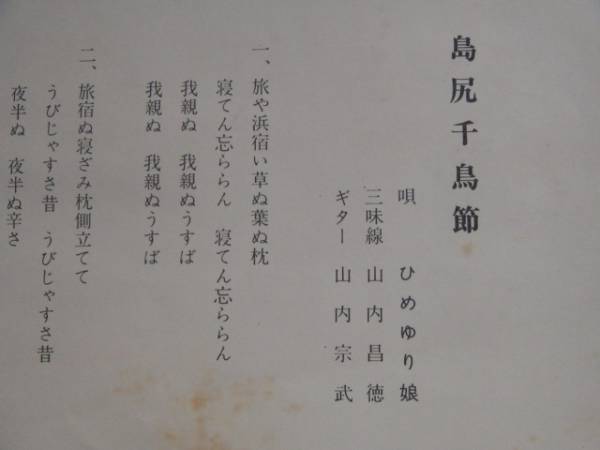 島尻千鳥節
唄 ひめゆり娘
三味線 山内昌徳
ギター 山内宗武
一、旅や浜宿い草ぬ葉ぬ枕
寝てん忘ららん 寝てん忘ららん
我親ぬ 我親ぬうすば
我親ぬ 我親ぬうすば
二、旅宿ぬ寝ざみ枕側立てて
うびじゃすさ昔 うびじゃすさ昔
夜半ぬ 夜半ぬ辛さ